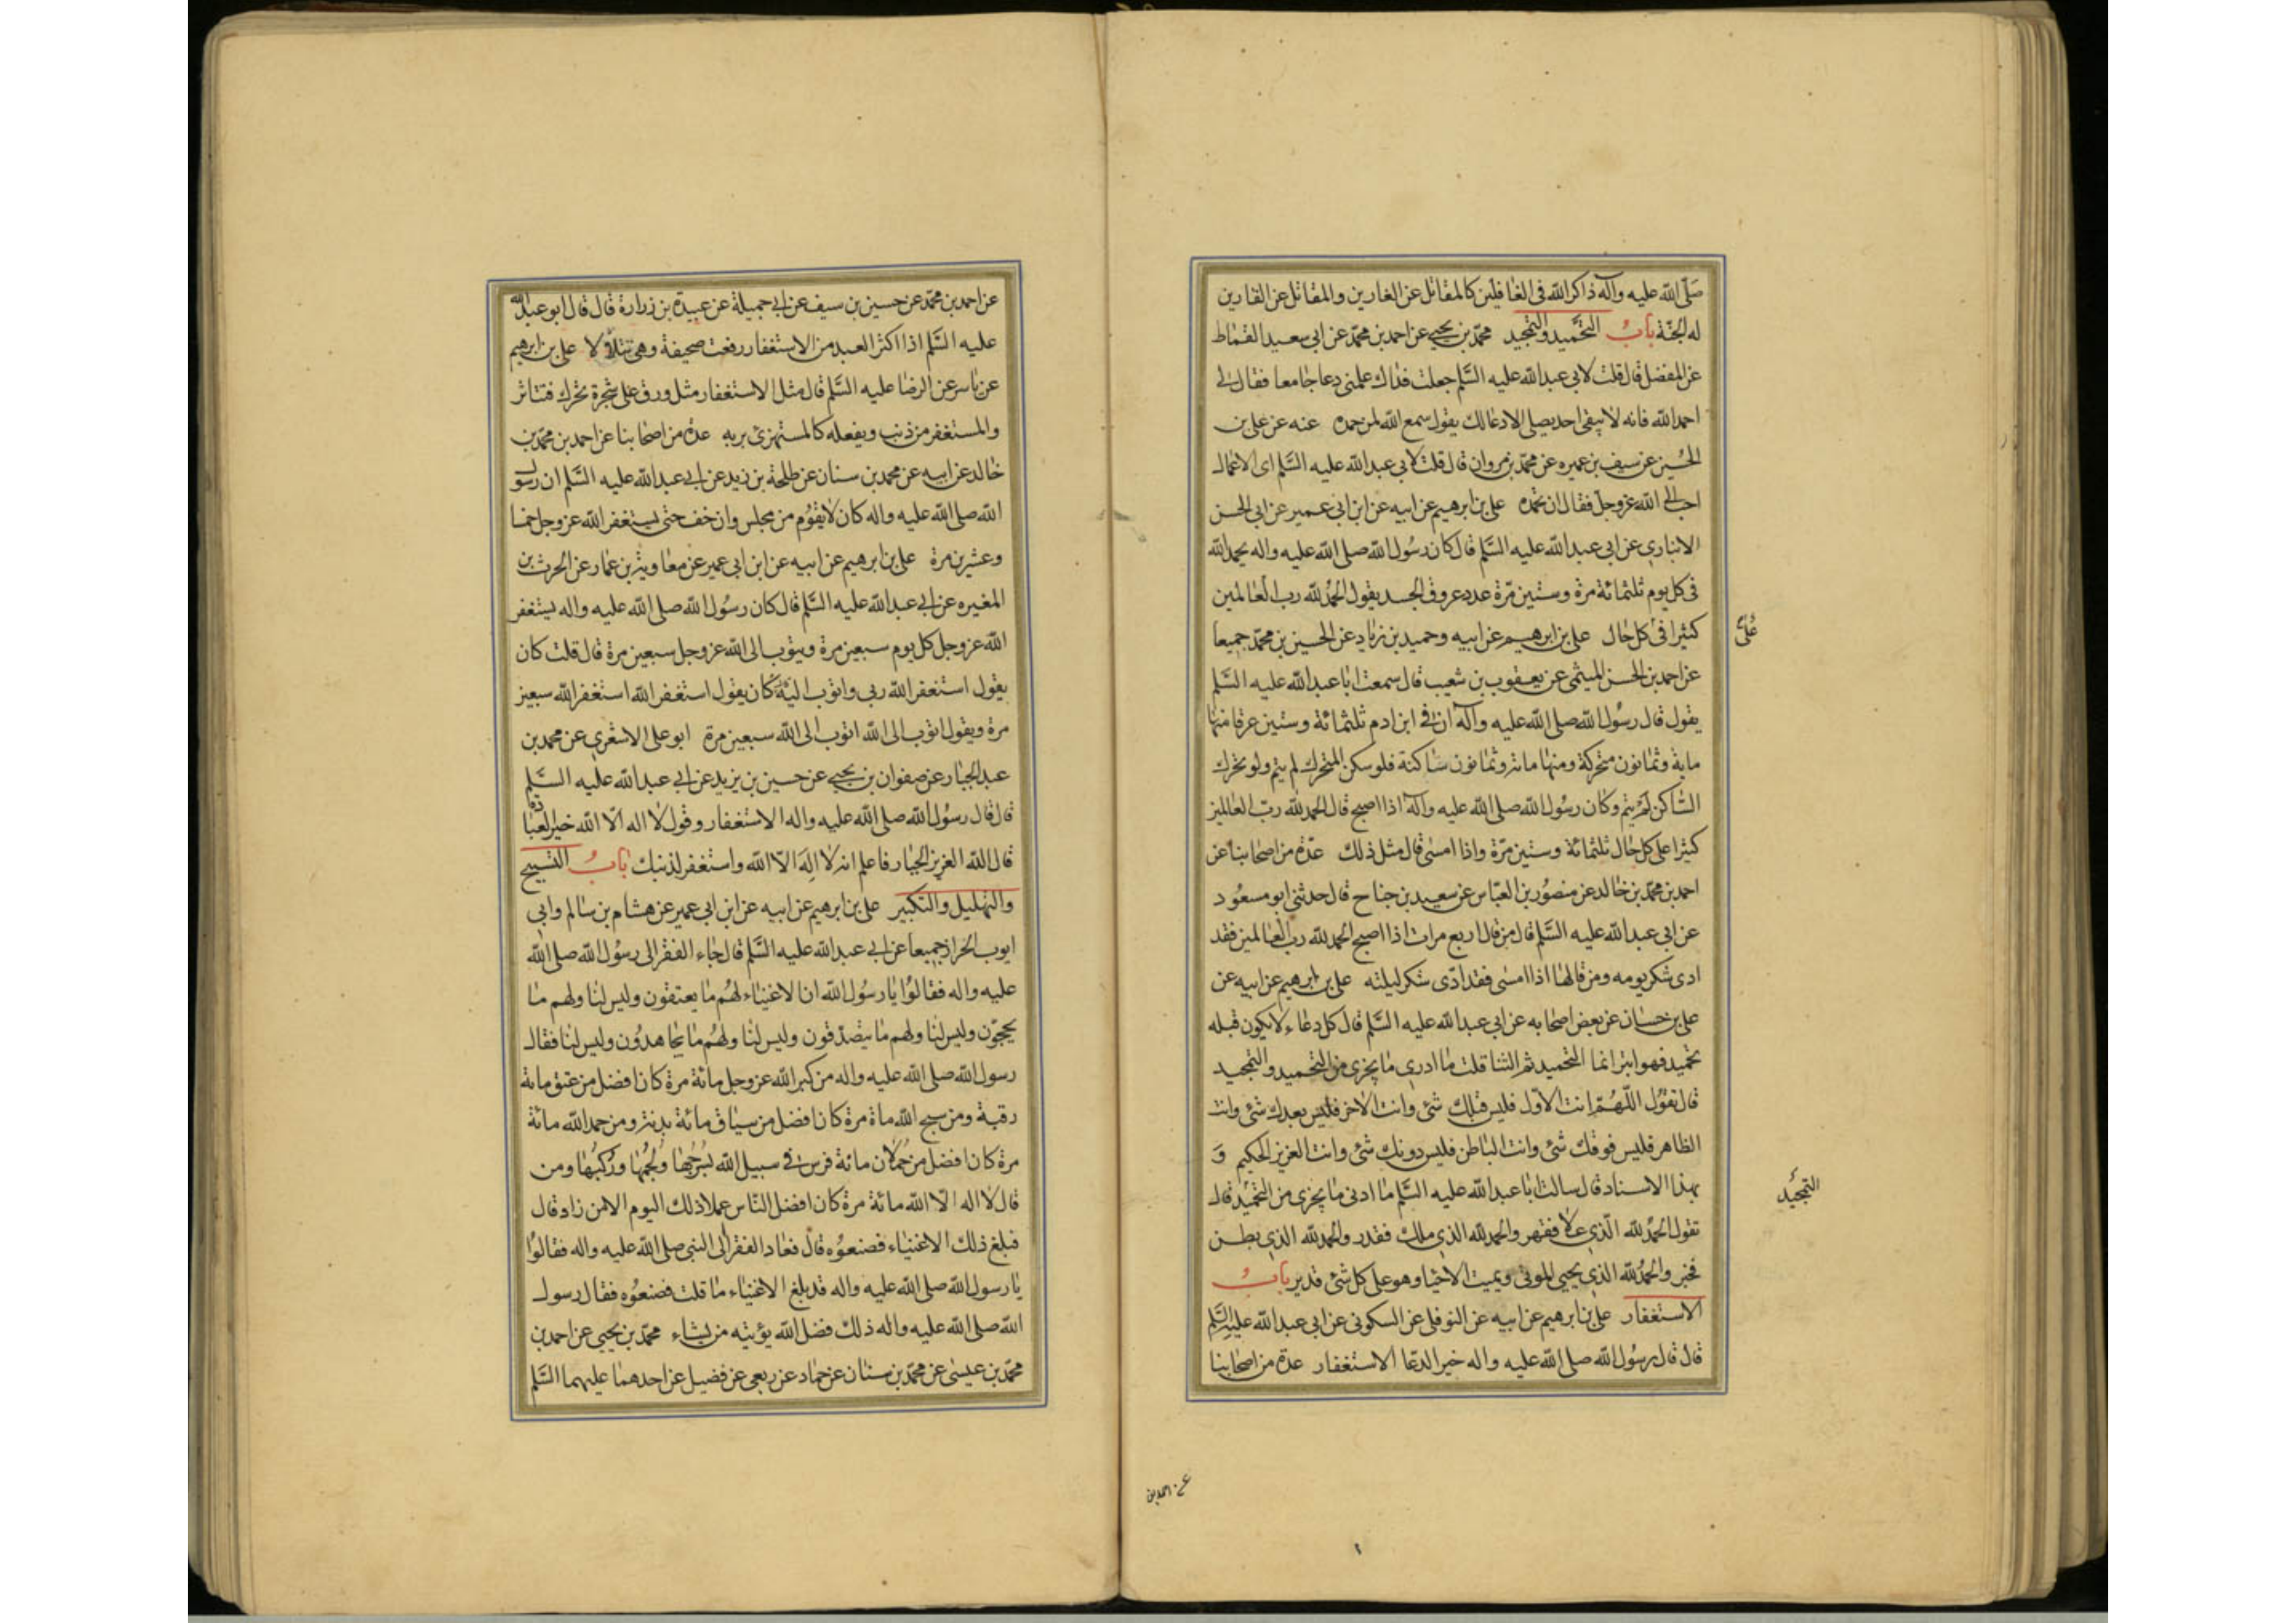 صلّى الله عليه وآله ذاكر الله فى الغافلين كالمقاتل عن الغارين والمقاتل عن الفارين
له الجنّة باب التحميد والتمجيد محمّد بن يحيى عن احمد بن محمّد عن ابى سعيد القماط
عن المفضل قال قلت لابى عبد الله عليه السَّلم جعلت فداك علمنى دعا جامعا فقال لى
احمد الله فانه لا يبقى احد يصلى الا دعا لك يقول سمع الله لمن حمده عنه عن على بن
الحسين عن سيف بن عميره عن محمّد بن مروان قال قلت لابى عبد الله عليه السَّلم اى الاعمال
احب الى الله عزوجل فقال ان تحمده على بن ابرهيم عن ابيه عن ابن ابى عمير عن ابى الحسن
الانبارى عن ابى عبد الله عليه السَّلم قال كان رسُول الله صلى الله عليه واله يحمد الله
فى كل يوم ثلثمائة مرة وستين مرّة عدد عروق الجسد يقول الحمد لله رب العالمين
كثيرا فى كل حال على بن ابرهيم عن ابيه وحميد بن زياد عن الحسين بن محمّد جميعا
على
عن احمد بن الحسن الميثمى عن يعقوب بن شعيب قال سمعت ابا عبد الله عليه السَّلم
يقول قال رسُول الله صلى الله عليه وآله ان فى ابن ادم ثلثمائة وستين عرقا منها
ماية وثمانون متحركة ومنها مائة وثمانون ساكنة فلو سكن المتحرك لم ينم ولو تحرك
الساكن لم ينم وكان رسُول الله صلى الله عليه وآله اذا اصبح قال الحمد لله ربّ العالمين
كثيرا على كل حال ثلثمائة وستين مرّة واذا امسى قال مثل ذلك عدّة من اصحابنا عن
احمد بن محمّد بن خالد عن منصُور بن العبّاس عن سعيد بن جناح قال حدثنى ابو مسعُود
عن ابى عبد الله عليه السَّلم قال من قال اربع مرات اذا اصبح الحمد لله رب العالمين فقد
ادى شكر يومه ومن قالها اذا امسى فقد ادّى شكر ليلته على بن ابرهيم عن ابيه عن
على بن حسان عن بعض اصحابه عن ابى عبد الله عليه السَّلم قال كل دعاء لا يكون قبله
تحميد فهو ابتر انما التحميد ثم الثنا قلت ما ادرى ما يجزى من التحميد والتمجيد
قال تقوُل اللّهُمّ انت الاوّل فليس قبلك شئ وانت الاخر فليس بعدك شئ وانت
الظاهر فليس فوقك شئ وانت الباطن فليس دونك شئ وانت العزيز الحكيم وَ
بهذا الاسناد قال سالت ابا عبد الله عليه السَّلم ما ادنى ما يجزى من التحميد قال
التمجيد
تقول الحمد لله الّذى علا فقهر والحمد لله الذى ملك فقدر والحمد لله الذى بطن
فخبر والحمد لله الذى يحيى الموتى ويميت الاحيا وهو على كل شئ قدير باب
الاستغفار على بن ابرهيم عن ابيه عن النوفلى عن السكونى عن ابى عبد الله عليه السَّلم
قال قال رسُول الله صلى الله عليه واله خير الدعا الاستغفار عدة من اصحابنا
عن احمد بن
عن احمد بن محمّد عن حسين بن سيف عن ابى جميلة عن عبيدة بن زرارة قال قال ابو عبد الله
عليه السَّلم اذا اكثر العبد من الاستغفار رفعت صحيفة وهى تتلألأ على بن ابرهيم
عن ياسر عن الرضا عليه السَّلم قال مثل الاستغفار مثل ورق على شجرة تحرك فتناثر
والمستغفر من ذنب ويفعله كالمستهزئ بربه عدة من اصحابنا عن احمد بن محمّد بن
خالد عن ابيه عن محمد بن سنان عن طلحة بن زيد عن ابى عبد الله عليه السَّلم ان رسول
الله صلى الله عليه واله كان لا يقوُم من مجلس وان خف حتى يستغفر الله عز وجل خمسا
وعشرين مرة على بن ابرهيم عن ابيه عن ابن ابى عمير عن معاوية بن عمار عن الحرث بن
المغيره عن ابى عبد الله عليه السَّلم قال كان رسُول الله صلى الله عليه واله يستغفر
الله عز وجل كل يوم سبعين مرة ويتوب الى الله عز وجل سبعين مرة قال قلت كان
يقول استغفر الله ربى واتوب اليه قال كان يقول استغفر الله استغفر الله سبعين
مرة ويقول اتوب الى الله اتوب الى الله سبعين مرة ابو على الاشعرى عن محمد بن
عبد الجبار عن صفوان بن يحيى عن حسين بن يزيد عن ابى عبد الله عليه السَّلم
قال قال رسُول الله صلى الله عليه واله الاستغفار وقول لا اله الا الله خير العبادة
قال الله العزيز الجبار فاعلم انه لا اله الا الله واستغفر لذنبك باب التسبيح
والتهليل والتكبير على بن ابرهيم عن ابيه عن ابن ابى عمير عن هشام بن سالم وابى
ايوب الخراز جميعا عن ابى عبد الله عليه السَّلم قال جاء الفقرا الى رسُول الله صلى الله
عليه واله فقالوُا يا رسُول الله ان الاغنياء لهُم ما يعتقون وليس لنا ولهم ما
يحجوّن وليس لنا ولهم ما يتصدّقون وليس لنا ولهُم ما يجاهدوُن وليس لنا فقال
رسول الله صلى الله عليه واله من كبر الله عز وجل مائة مرة كان افضل من عتق مائة
رقبة ومن سبح الله ماة مرة كان افضل من سياق مائة بدنة ومن حمد الله مائة
مرة كان افضل من حُملان مائة فرس فى سبيل الله بسُرُجها ولُجُمها ورُكُبها ومن
قال لا اله الا الله مائة مرة كان افضل الناس عملا ذلك اليوم الا من زاد قال
فبلغ ذلك الاغنياء فصنعوُه قال فعاد الفقرا الى النبى صلى الله عليه واله فقالوُا
يا رسول الله صلى الله عليه واله قد بلغ الاغنياء ما قلت فصنعوُه فقال رسول
الله صلى الله عليه واله ذلك فضل الله يؤتيه من يشاء محمّد بن يحيى عن احمد بن
محمّد بن عيسى عن محمّد بن سنان عن حماد عن ربعى عن فضيل عن احدهما عليهما السَّلم